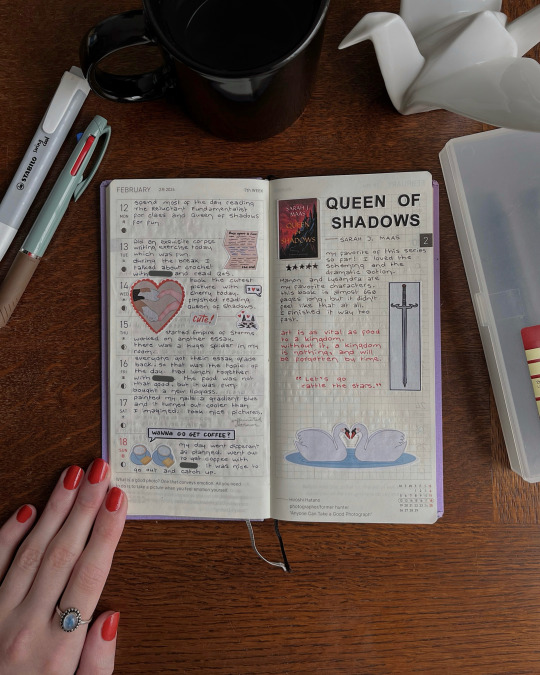 STABILO
FEBRUARY
7th WEEK
12
MON
spend most of the day reading
the Reluctant Fundamentalist
for class and Queen of shadows
for fun.
13
TUE
Did an exquisite corpse
writing exercise today,
which was fun.
during the break, I
talked about crochet
with
and read QoS.
14
took the cutest
picture with
today,
finished reading
Queen of shadows.
cute!
15
started Empire of Storms
worked on another essay.
there was a huge spider in my
room.
16
everyone got their essay grade
back, so that was the topic of
the day. Had lunch together
with
the food was not
that good, but it was fun.
bought a new
17
SAT
painted my nails a gradient blue
and it turned out cooler than
I imagined. took nice pictures.
WANNA GO GET COFFEE?
18
SUN
my day went different
as planned. went
to get coffee with
it was nice to
go out and catch up.
SARAH J.
MAAS
QUEEN
OF
SHADOWS
★★★★★
QUEEN OF
SHADOWS
SARAH J. MAAS
2
my favorite of this series
so far! I loved the
scheming and the
dramatic action.
Manon and Lysandra are
my favorite characters.
this book is almost 660
pages long, but it didn't
feel like that at all.
I finished it way too
fast.
art is as vital as food
to a kingdom.
without it, a kingdom
is nothing, and will
be forgotten by time.
"Let's go
rattle the stars."
"Anyone Can Take a Good Photograph"